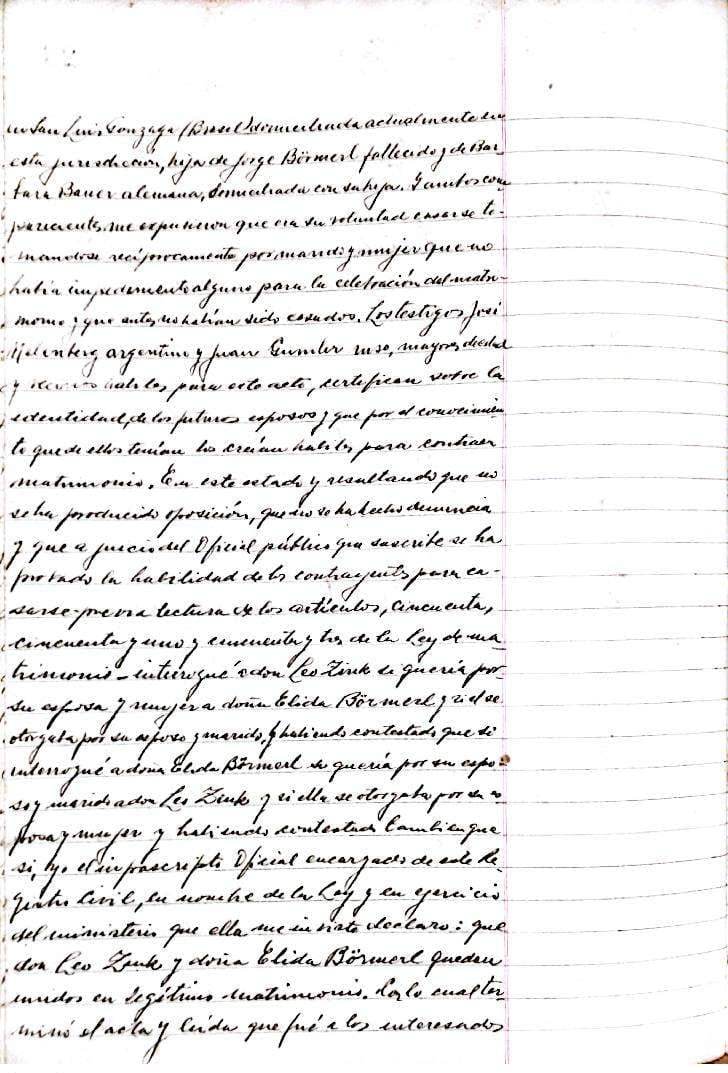 en San Luis Gonzaga (Brasil) domiciliada actualmente en
esta jurisdiccion, hija de Jorge Börmerl fallecido y de Bar-
bara Bauer alemana, domiciliada con su hija. Y ambos com
parecientes me expusieron que era su voluntad casarse to-
mandose recíprocamente por marido y mujer que no
había impedimento alguno para la celebración del matri-
monio y que antes no habían sido casados. Los testigos, José
Holenberg argentino y Juan ruso, mayores de edad
y vecinos habiles para este acto, certifican sobre la
identidad de los futuros esposos y que por el conocimien
to que de ellos tenían los creían habiles para contraer
matrimonio. En este estado y resultando que no
se ha producido oposición, que no se ha hecho denuncia
y que a juicio del Oficial público que suscribe se ha
probado la habilidad de los contrayentes para ca-
sarse previa lectura de los artículos, cincuenta,
cincuenta y uno y cincuenta y tres de la Ley de ma
trimonio – interrogué a don Leo Zink si quería por
su esposa y mujer a doña Elida Börmerl y si él se
otorgaba por su esposo y marido, y habiendo contestado que si
interrogué a doña Elida Börmerl si quería por su espo-
so y marido a don Leo Zink y si ella se otorgaba por su es
posa y mujer y habiendo contestado tambien que
si, yo el infrascripto Oficial encargado de este Re-
gistro Civil, en nombre de la Ley y en ejercicio
del ministerio que ella me inviste declaro: que
don Leo Zink y doña Elida Börmerl quedan
unidos en legítimo matrimonio. Con lo cual ter-
minó el acta y leída que fué a los interesados